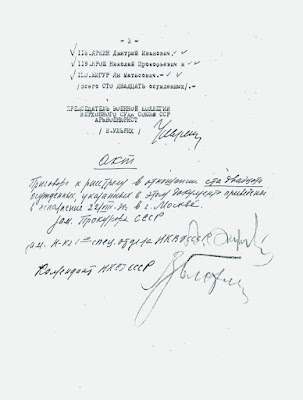 - 3 -
✓118.ЯРКИН Дмитрий Иванович. ✓ ✓
✓119.ЯРОШ Николай Прокофьевич и ✓
✓120. Ян Матисович.- ✓ ✓
/всего СТО ДВАДЦАТЬ осужденных/.-
ПРЕДСЕДАТЕЛЬ ВОЕННОЙ КОЛЛЕГИИ
ВЕРХОВНОГО СУДА СОЮЗА ССР
АРМВОЕНЮРИСТ
/В.УЛЬРИХ/
Акт
Приговор к расстрелу в отношении ста двадцати
осужденных, указанных в этом документе приведены
в исполнение в г. Москве.
Зам. Прокурора СССР
Зам. н-ка 1го спец. отдела НКВД СССР
Комендант НКВД СССР